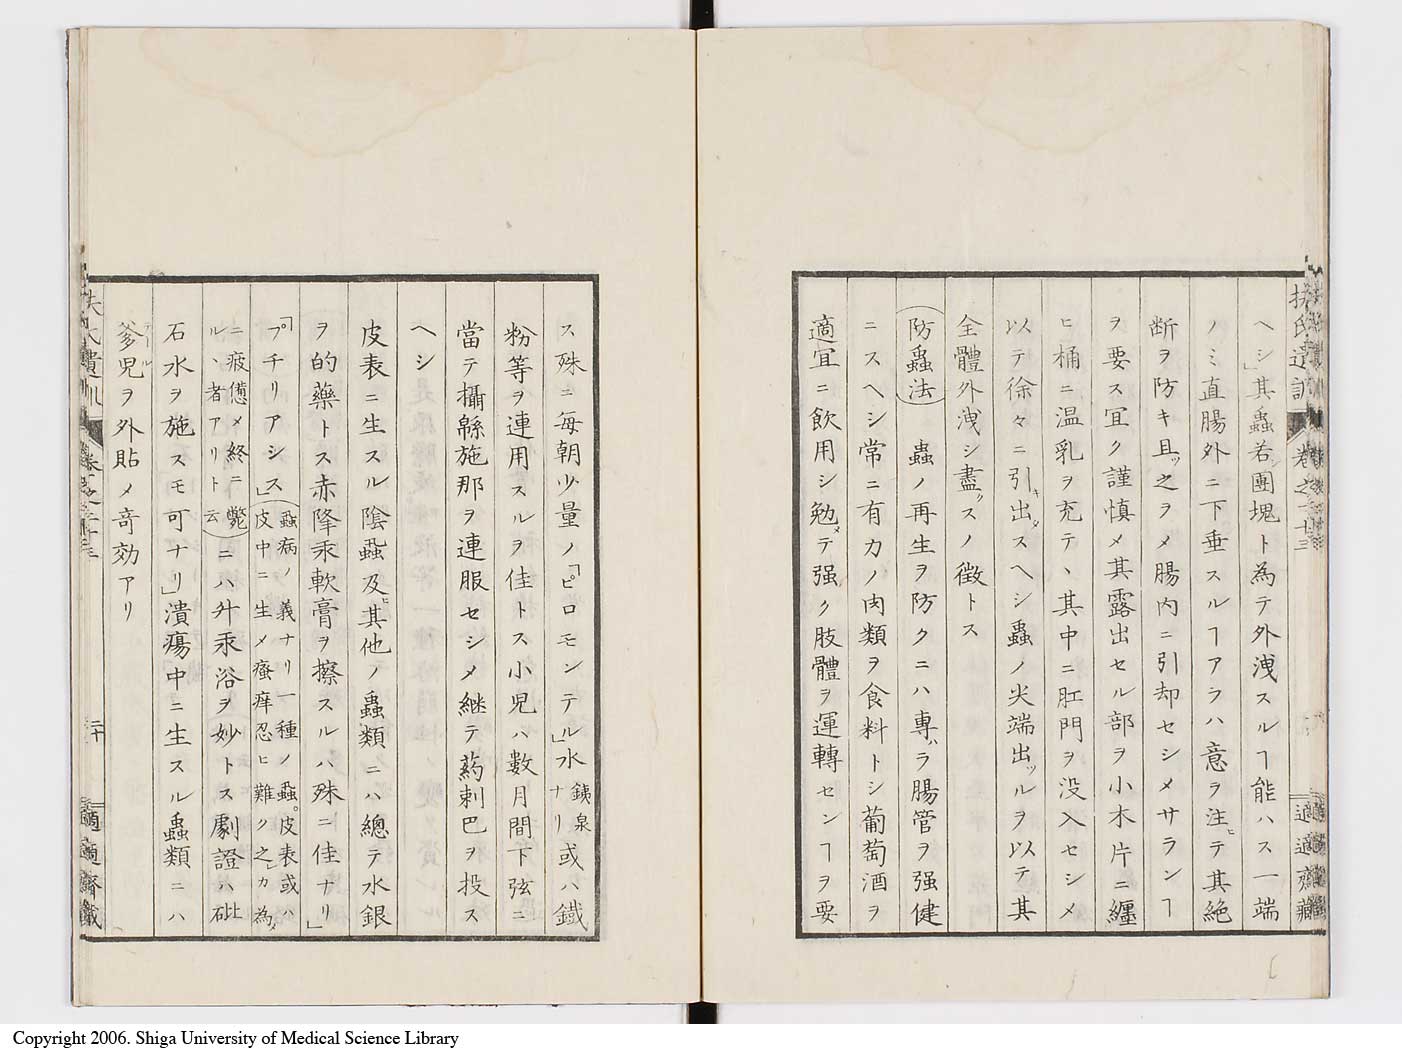 扶氏遺訓 卷之二十三 適適齊藏
ヘシ」其蟲若シ團塊ト為テ外洩スルヿ能ハス一端
ノミ直腸外ニ下垂スルヿアラハ意ヲ注ヒテ其絶
断ヲ防キ且ツ之ヲメ腸内ニ引却セシメサランヿ
ヲ要ス冝ク謹慎メ其露出セル部ヲ小木片ニ纏
ヒ桶ニ温乳ヲ充テ、其中ニ肛門ヲ没入セシメ
以テ徐々ニ引キ出メスヘシ蟲ノ尖端出ツルヲ以テ其
全體外洩シ盡クスノ徴トス
防蟲法 蟲ノ再生ヲ防クニハ専ハラ腸管ヲ强健
ニスヘシ常ニ有力ノ肉類ヲ食料トシ葡萄酒ヲ
適冝ニ飲用シ勉メテ强ク肢體ヲ運轉センヿヲ要
ス殊ニ毎朝少量ノ「ピロモンテル」水銕泉ナリ或ハ鐵
粉等ヲ連用スルヲ佳トス小児ハ數月間下弦ニ
當テ攝緜施那ヲ連服セシメ継テ葯剌巴ヲ投ス
ヘシ
皮表ニ生スル陰蝨及ヒ其他ノ蟲類ニハ總テ水銀
ヲ的藥トス赤降汞軟膏ヲ擦スルハ殊ニ佳ナリ」
「プチリアシス」蝨病ノ義ナリ一種ノ蝨。皮表或ハ皮中ニ生メ瘙痒忍ヒ難ク之」カ為メ
ニ疲憊メ終ニ斃ル、者アリト云ニハ舛汞浴ヲ妙トス劇證ハ砒
石水ヲ施スモ可ナリ」潰瘍中ニ生スル蟲類ニハ
爹児テールヲ外貼メ奇効アリ
扶氏遺訓 卷之二十三 二十 適適齊藏
Copyright 2006. Shiga University of Medical Science Library